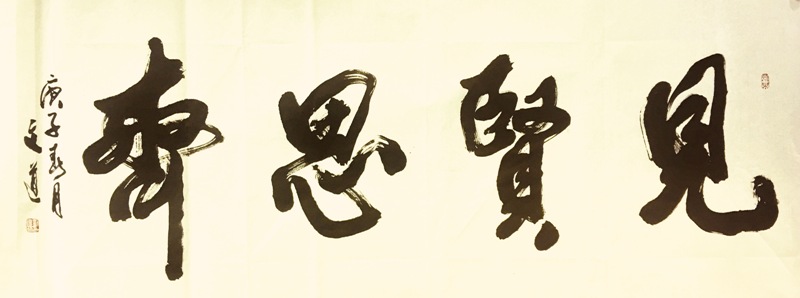 見賢思齊
庚子春月
文道